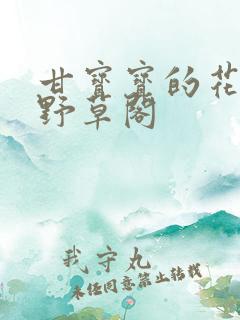 甘寳寳的花
野草閣
我守丸
未经同意禁止转载